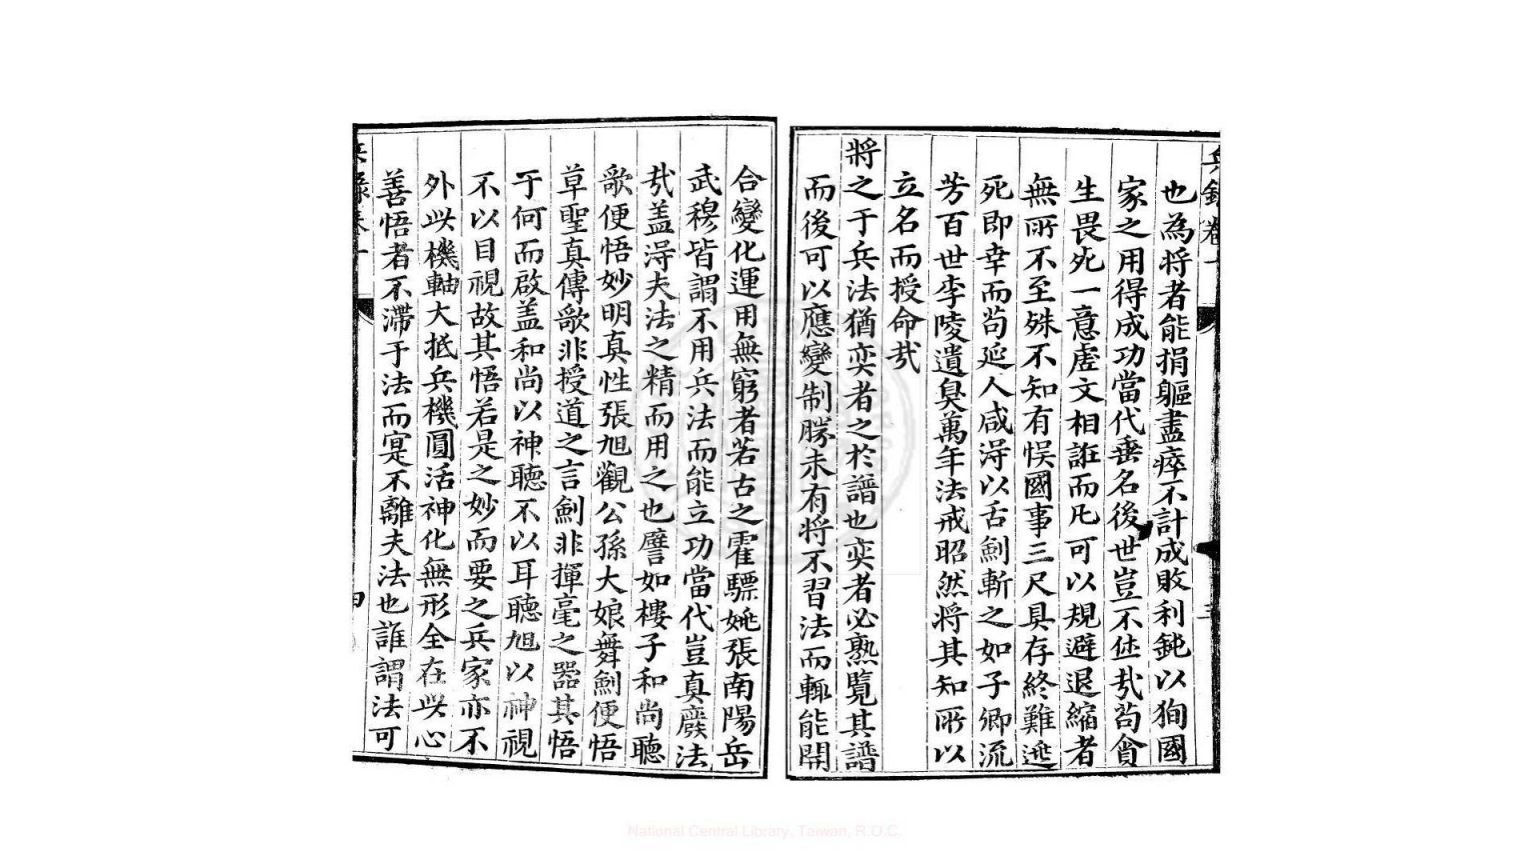 兵錄卷十
也為將者能捐軀盡瘁不計成敗利鈍以狥國
家之用得成功當代垂名後世豈不偉㢤苟貪
生畏死一意虗文相誑而凡可以規避退縮者
無所不至殊不知有悞國事三尺具存終難逃
死即幸而苟延人咸淂以舌劍斬之如子卿流
芳百世李陵遺臭萬年法戒昭然將其知所以
立名而授命㢤
將之于兵法猶奕者之於譜也奕者必熟覽其譜
而後可以應變制勝未有將不習法而輒能開
三
合變化運用無窮者若古之霍驃姚張南陽岳
武穆皆謂不用兵法而能立功當代豈真廢法
㢤盖淂夫法之精而用之也譬如樓子和尚聽
歌便悟妙明真性張旭觀公孫大娘舞劍便悟
草聖真傳歌非授道之言劍非揮毫之器其悟
于何而啟盖和尚以神聽不以耳聽旭以神視
不以目視故其悟若是之妙而要之兵家亦不
外此機軸大抵兵機圓活神化無形全在此心
善悟者不滯于法而寔不離夫法也誰謂法可
兵錄卷十
四
National Central Library, Taiwan, R.O.C.